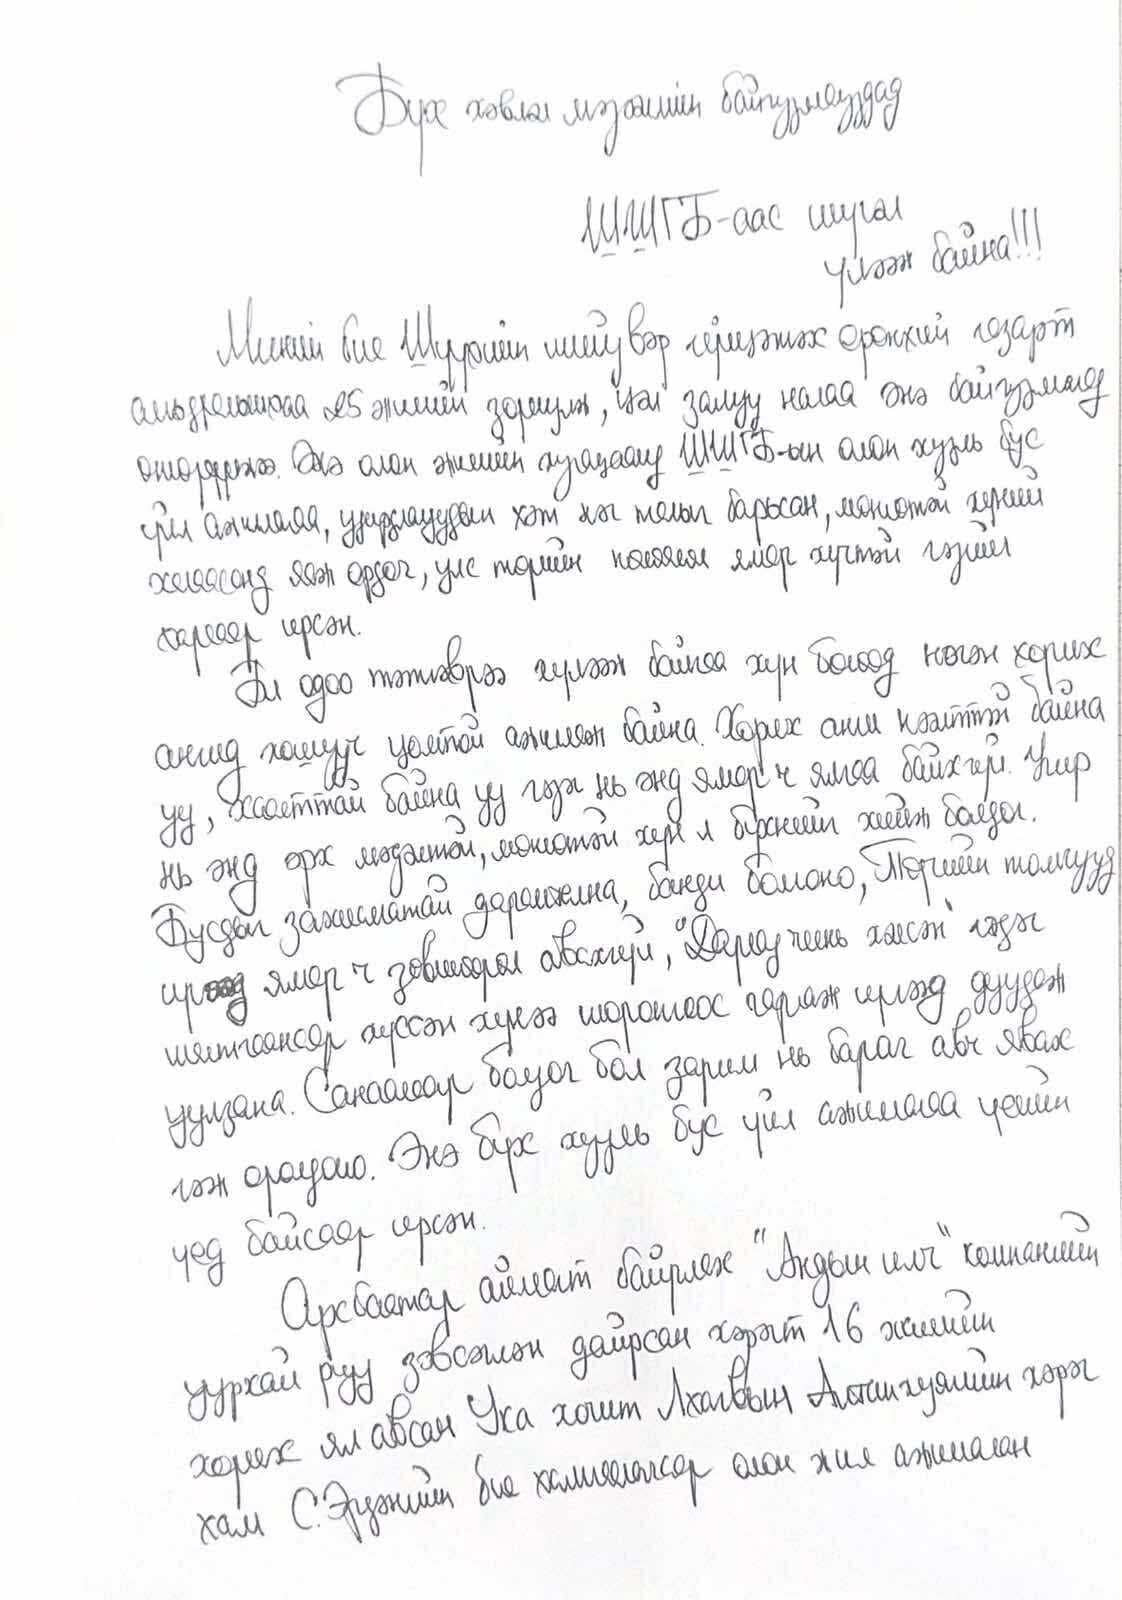 Бүх хэвлэл мэдээллийн байгууллагуудад
ШШГБ-аас шугал
үлээж байна!!!
Миний бие Шүүхийн шийдвэр гүйцэтгэх ерөнхий газарт
амьдралынхаа 25 жилийг зориулж, цэл залуу насаа энэ байгууллагад
өнгөрүүлжээ. Энэ олон жилийн хугацаанд ШШГБ-ын олон хууль бус
үйл ажиллагаа, удирдлагуудын хэт нэг талыг барьсан, мөнгөтэй хүний
халаасанд яаж ордог, улс төрийн нөлөөлөл ямар хүчтэй гэдгийг
харсаар ирсэн.
Би одоо тэтгэврээ хүлээж байгаа хүн бөгөөд нэгэн хорих
ангид хошууч цолтой ажиллаж байна. Хорих анги нээлттэй байна
уу, хаалттай байна уу гэдэг нь энд ямар ч ялгаа байхгүй. Учир
нь энд эрх мэдэлтэй, мөнгөтэй хүн л бүхнийг хийж болдог.
Бусдыг захиалгатай дарамтална, банди болгоно, Төрийн томчууд
ирээд ямар ч зөвшөөрөл авахгүй, "Дарга чинь хэлсэн" гэдэг
шалтгаанаар хүссэн хүнээ шоронгоос гаргаж ирээд дуудаж
уулзана. Санаагаар болдог бол зарим нь бараг авч явах
гэж оролдоно. Энэ бүх хууль бус үйл ажиллагаа үеийн
үед байсаар ирсэн.
Архангай аймагт байрлах "Андын илч" компанийн
уурхай руу зэвсэглэн дайрсан хэрэгт 16 жилийн
хорих ял авсан Ука хочит Лхагвын Алтанхуягийн хэрэг
хам С.Эрдэнийн бие хамгаалагчаар олон жил ажилласан